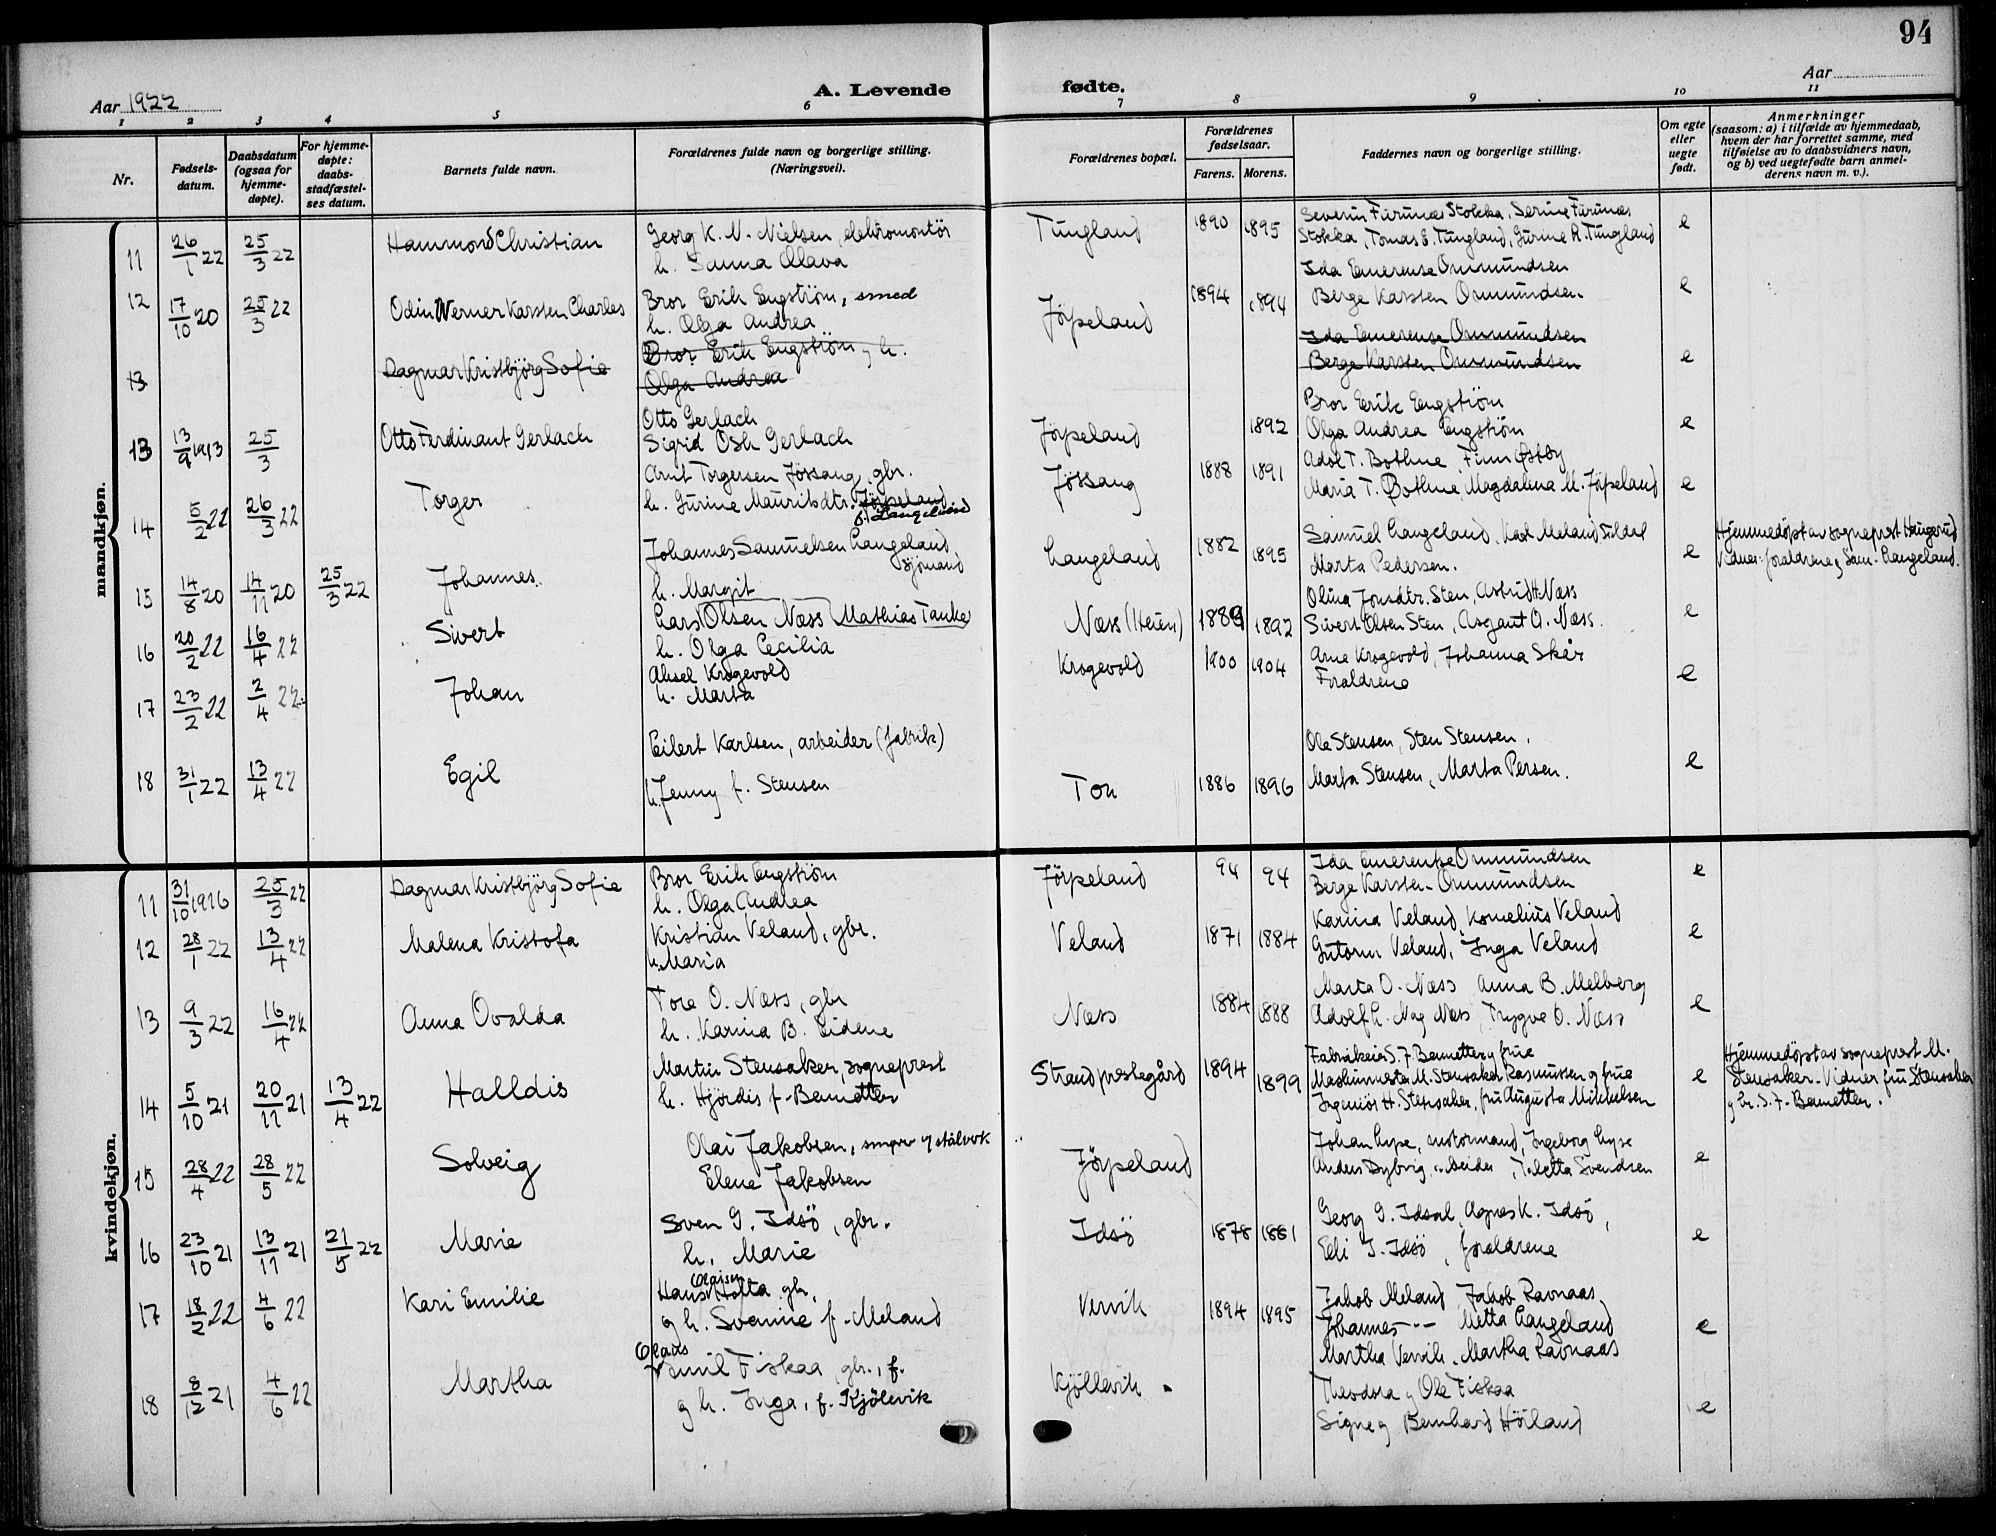 94
Aar 1922
A. Levende fødte.
Aar
1 2 3 4 5 6 7 8 9 10 11
Nr.
Fødsels-datum.
Daabsdatum (ogsaa for hjemme-døpte).
For hjemme-døpte: daabs-stadfæstel-ses datum.
Barnets fulde navn.
Forældrenes fulde navn og borgerlige stilling. (Næringsvei).
Forældrenes bopæl.
Forældrenes fødselsaar.
Farens. Morens.
Faddernes navn og borgerlige stilling.
Om egte eller uegte født.
Anmerkninger (saasom: a) i tilfælde av hjemmedaab, hvem der har forrettet samme, med tilføielse av to daabsvidners navn, og b) ved uegtefødte barn anmel-derens navn m. v.).
mandkjøn.
11 26/1 22 25/3 22 Hammond Christian
Georg K. N. Nielsen, elektromontör
h. Sanna Olava
Tungland 1890 1895
Severin Furunes Stokka, Serine Furunes
Stokka, Tomas E. Tungland, Gurine R. Tungland
e
12 17/10 20 25/3 22 Odin Werner Karsten Charles
Bror Erik Engström, smed
h. Olga Andrea
Jörpeland 1894 1894
Ida Emerense Ommundsen
Berge Karsten Ommundsen
e
13 Dagmar Kristbjörg Sofie
Bror Erik Engström, h.
Olga Andrea
Ida Emerense Ommundsen
Berge Karsten Ommundsen
e
13 13/9 1913 25/3 Otto Ferdinant Gerlach
Otto Gerlach
Sigrid Osk Gerlach
Jörpeland 1892
Bror Erik Engström
Olga Andrea Engström
e
14 5/2 22 26/3 22 Torger
Arnt Torgersen Jössang, gbr.
h. Gurine Mauritsdtr. Jörpeland
f. Langeland
Jössang 1888 1891
Adol T. Bothne, Finn Östby
Maria T. Bothne, Magdalena M. Jörpeland
e
15 14/8 20 14/11 20 25/3 22 Johannes
Johannes Samuelsen Langeland
sjömand
h. Margit
Langeland 1882 1895
Samuel Langeland, Karl Meland Fildal
Marta Pedersen.
e
Hjemmedöpt av sogneprest Haugerud
Vidner: foraldrene, Sam. Langeland.
16 20/2 22 16/4 22 Sivert
Lars Olsen Næss Mathias Tanke
h. Olga Cecilia
Næss (Heien) 1889 1892
Olina Jonsdtr. Sten, Astrid H. Næss
Sivert Olsen Sten, Asgaut O. Næss.
e
17 23/2 22 2/4 22 Johan
Aksel Krogevold
h. Marta
Krogevold 1900 1904
Arne Krogevold, Johanna Skår
Foraldrene
e
18 31/1 22 13/4 22 Egil
Eilert Karlsen, arbeider (fabrik)
h. Jenny f. Stensen
Tou 1886 1896
Ole Stensen, Sten Stensen,
Marta Stensen, Marta Persen.
e
kvindekjøn.
11 31/10 1916 25/3 22 Dagmar Kristbjörg Sofie
Bror Erik Engström
h. Olga Andrea
Jörpeland 94 94
Ida Emerentse Ommundsen
Berge Karsten Ommundsen
e
12 28/1 22 13/4 22 Malena Kristofa
Kristian Veland, gbr.
h. Maria
Veland 1871 1884
Karina Veland, Kornelius Veland
Gutorm Veland, Inga Veland
e
13 9/3 22 16/4 22 Anna Ovalda
Tore O. Næss, gbr
h. Karina B. Eidene
Næss 1884 1888
Marta O. Næss Anna B. Melberg
Adolf L. Nag Næss, Trygve O. Næss
e
14 5/10 21 20/11 21 13/4 22 Halldis
Martin Stensaker, sogneprest
h. Hjördis f. Bennetter
Strand prestegård 1894 1899
Fabrikeier S. F. Bennetter g frue
Maskinmester M. Stensaker Rasmussen g frue
Ingeniör H. Stensaker, fru Augusta Mikkelsen
e
Hjemmedöpt av sogneprest M.
Stensaker. Vidner fru Stensaker
g hr. S. F. Bennetter.
15 28/4 22 28/5 22 Solveig
Olai Jakobsen, smører g stålverk
Elene Jakobsen
Jörpeland
Johan Lype, Ingeborg Lype
Anders Dybvig arbeider, Tabetta Svendsen
e
16 23/10 21 13/11 21 21/5 22 Marie
Sven G. Idsö, gbr.
h. Marie
Idsö 1878 1881
Georg G. Idsal, Agnes K. Idsö,
Elli I. Idsö, foraldrene
e
17 18/2 22 4/6 22 Kari Emilie
Olaisen
Hans Holta gbr,
g h. Svenine f. Meland
Vervik 1894 1895
Jakob Meland, Jakob Ravnaas
Johannes -- Metta Langeland
Martha Vervik. Martha Ravnaas
e
18 8/12 21 4/6 22 Martha
Olaus
Emil Fiskaa, gbr., f.
g h. Inga, f. Kjölevik
Kjöllevik
Theodora g Ole Fiskaa
Signe g Bernhard Höiland
e